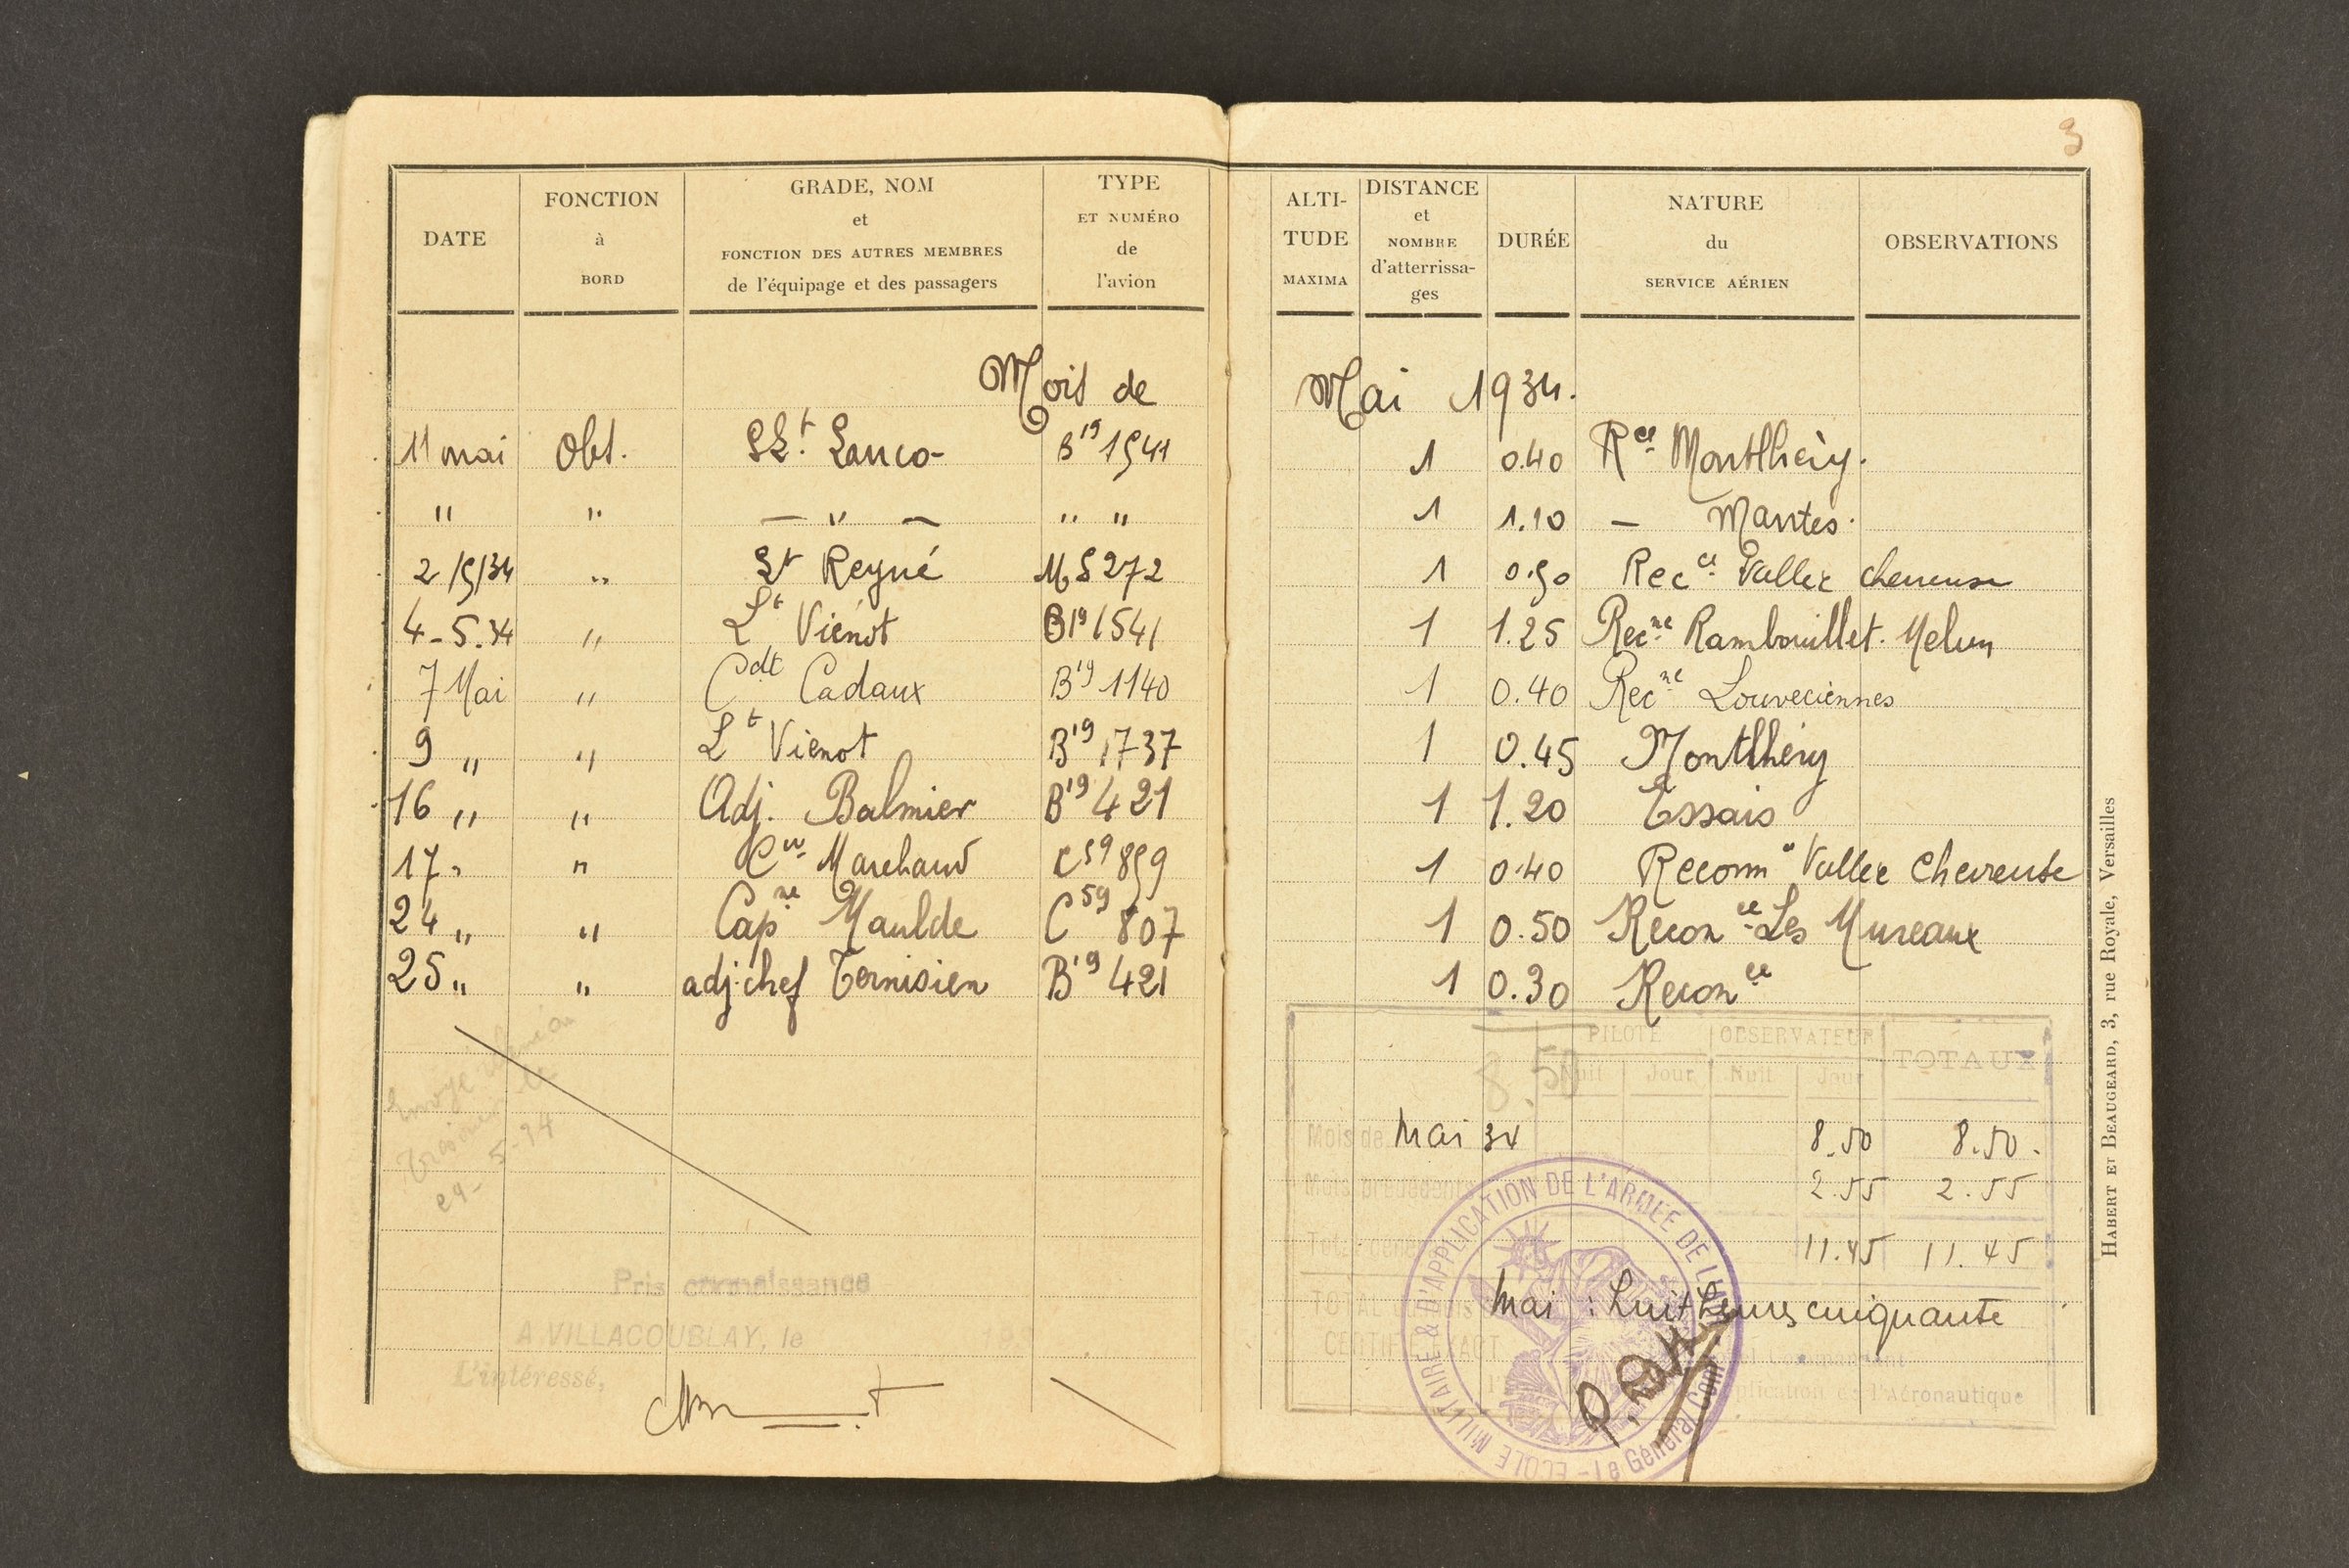 3
DATE
FONCTION
à
BORD
GRADE, NOM
et
FONCTION DES AUTRES MEMBRES
de l'équipage et des passagers
TYPE
ET NUMÉRO
de
l'avion
ALTI-
TUDE
MAXIMA
DISTANCE
et
NOMBRE
d'atterrissa-
ges
DURÉE
NATURE
du
SERVICE AÉRIEN
OBSERVATIONS
Mois de Mai 1934.
11 mai Obs. SLt. Lanco- B19 1541 1 0.40 Rce Montlhéry.
" " — " — " " 1 1.10 — Mantes.
2/5/34 " Lt Reyné MS 272 1 0.50 Recce Vallée chevreuse
4-5.34 " Lt Viénot B19 1541 1 1.25 Recne Rambouillet. Melun
7 Mai " Cdt Cadaux B19 1140 1 0.40 Recne Louveciennes
9 " " Lt Vienot B19 1737 1 0.45 Montlhéry
16 " " Adj. Balmier B19 421 1 1.20 Essais
17 " " Cne Marchand C59 859 1 0.40 Reconnce Vallée Chevreuse
24 " " Capne Maulde C59 807 1 0.50 Reconce Les Mureaux
25 " " adj.chef Ternisien B19 421 1 0.30 Reconce
8.50
PILOTE OBSERVATEUR TOTAUX
Nuit Jour Nuit Jour
Mois de Mai 34 8.50 8.50.
Mois précédents 2.55 2.55
11.45 11.45
Mai : huit heures cinquante
CERTIFIÉ EXACT
l'Aéronautique
ECOLE MILITAIRE & D'APPLICATION DE L'ARMÉE DE L'AIR
Le Général Comt
Pris connaissance
A VILLACOUBLAY, le
L'intéressé,
HABERT ET BEAUGEARD, 3, rue Royale, Versailles